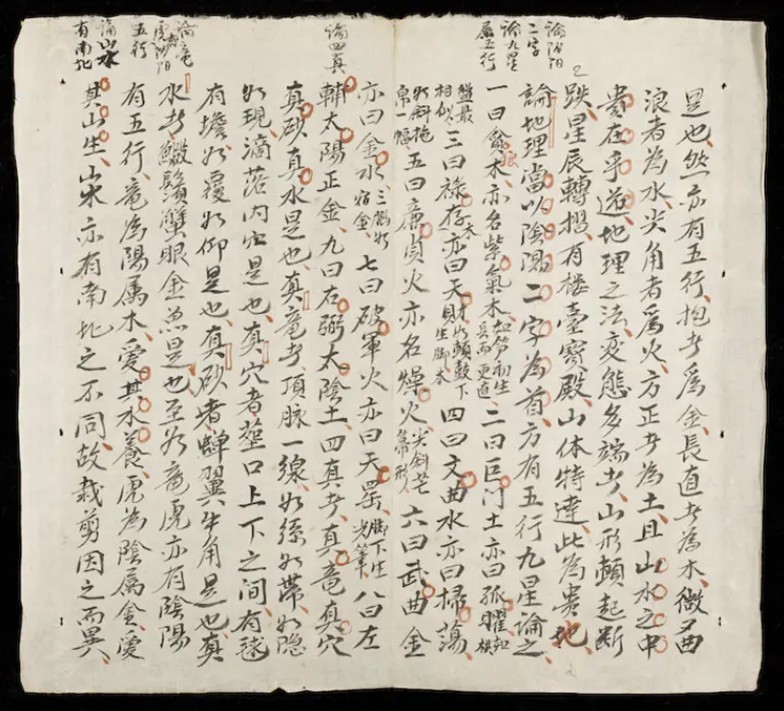 是也、然亦有五行、抱者為金、長直者為木、微曲
浪者為水、尖角者為火、方正者為土、且山水之中
貴在乎地理之法、变態多端者、山形頓起断
跌、星辰轉摺、有楼臺寶殿、山体特達、此為貴地、
論陰陽
二字
論九星
属五行
論地理當以陰陽二字為首、方有五行九星論之
一曰貪木、亦名紫氣木如笋初生而更直二曰巨门土亦曰孤曜如
盤最
相似三曰禄存木亦曰天財如頓鼓下生脚木四曰文曲水亦曰掃蕩、
如斜拖
帛一幅五曰廉貞火亦名燥火尖斜芒六曰武曲金
亦曰金水七曰破軍火亦曰天罡脚下生尖筆八曰左
論四真
輔太陽正金、九曰右弼太陰土、四真者、真竜真穴
真砂真水是也、真竜者、頂脉一線、如絲如帶、如隐
如現、滴落内是也、真穴者、塟口上下之间、有毬
有擔、如覆如仰是也、真砂者蟬翼牛角是也、真
論竜
虎陰陽
五行
水者蝦鬚蟹眼金魚是也、至於竜虎亦有陰陽
有五行、竜為陽属木、愛其水養、虎為陰属金、愛
論山水
有南北
其山生、山水亦有南北之不同、故裁剪因之而異、